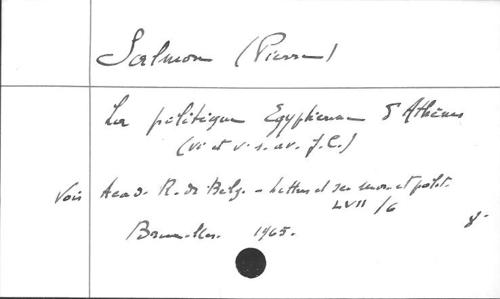 Salmon (Pierre)
La politique Egyptienne d'Athènes
(VI et V s. av. J.C.)
Voir Acad. R. de Belg. - Lettres et sc. mor. et polit.
LVII/6 8°
Bruxelles. 1965.